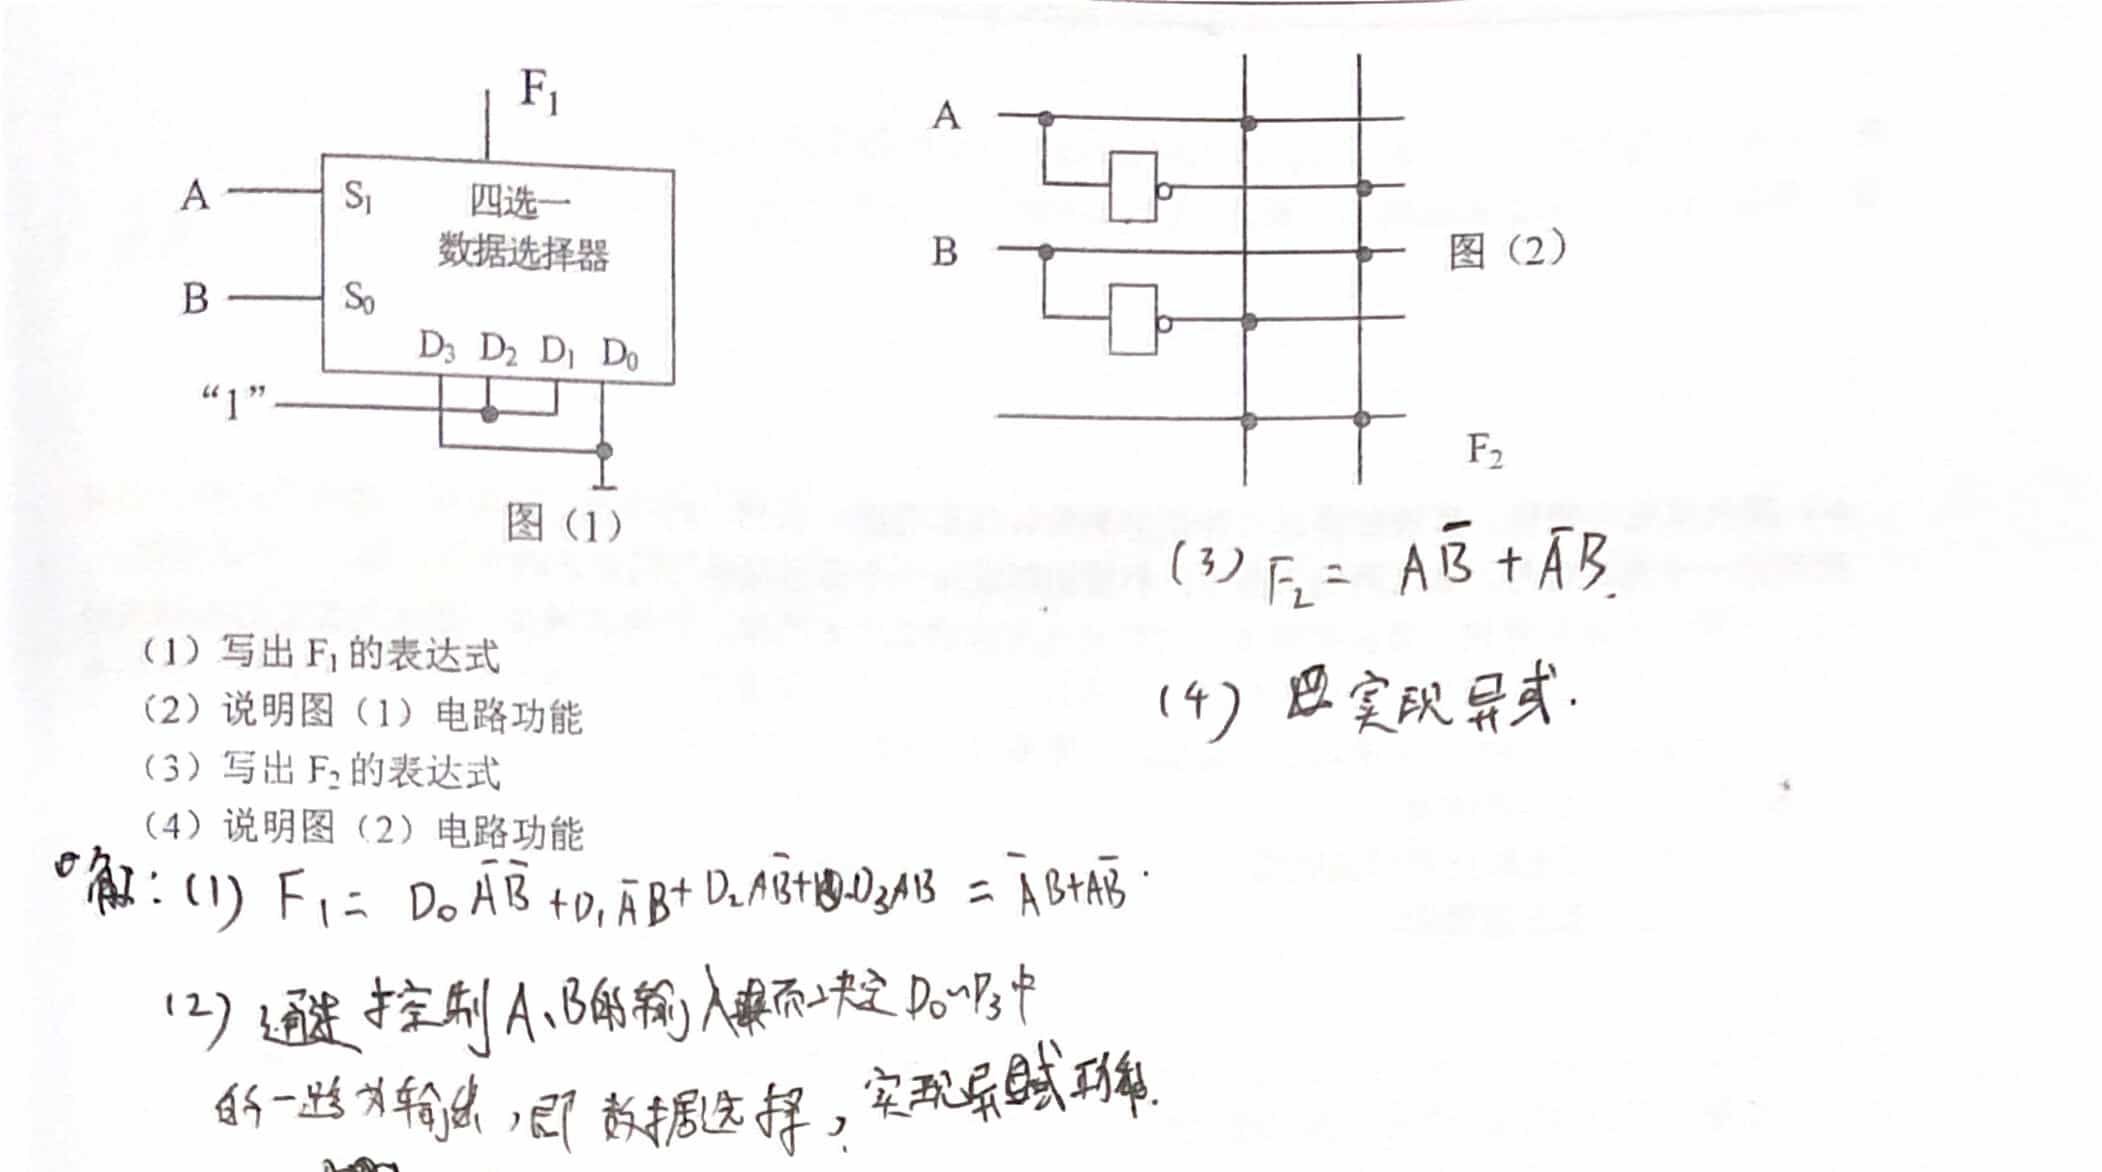 F₁
A
S₁
四选一
数据选择器
B
S₀
D₃ D₂ D₁ D₀
“1”
图（1）
A
B
图（2）
F₂
(3) F₂ = AB̅ + A̅B.
(4) 实现异或.
（1）写出 F₁ 的表达式
（2）说明图（1）电路功能
（3）写出 F₂ 的表达式
（4）说明图（2）电路功能
解：(1) F₁ = D₀A̅B̅ + D₁A̅B + D₂AB̅ + D₃AB = A̅B + AB̅.
(2) 通过控制A、B的输入来而决定D₀~D₃中
的一路为输出，即数据选择，实现异或功能.